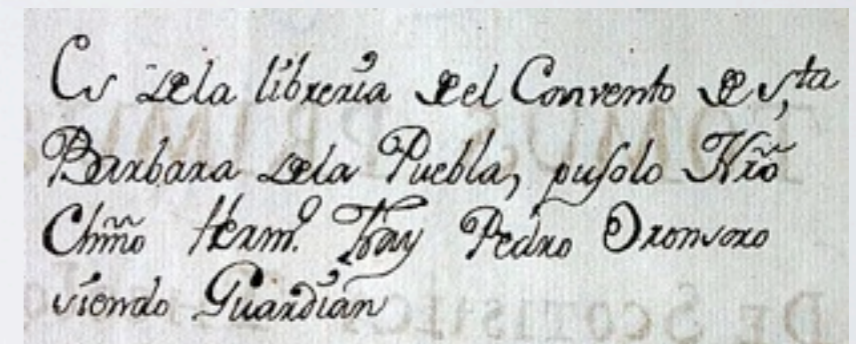 Es dela libreria del Convento de S.ta
Barbara dela Puebla, pusolo Nro
Chmo Herm.o Fray Pedro Oronsoro
siendo Guardian